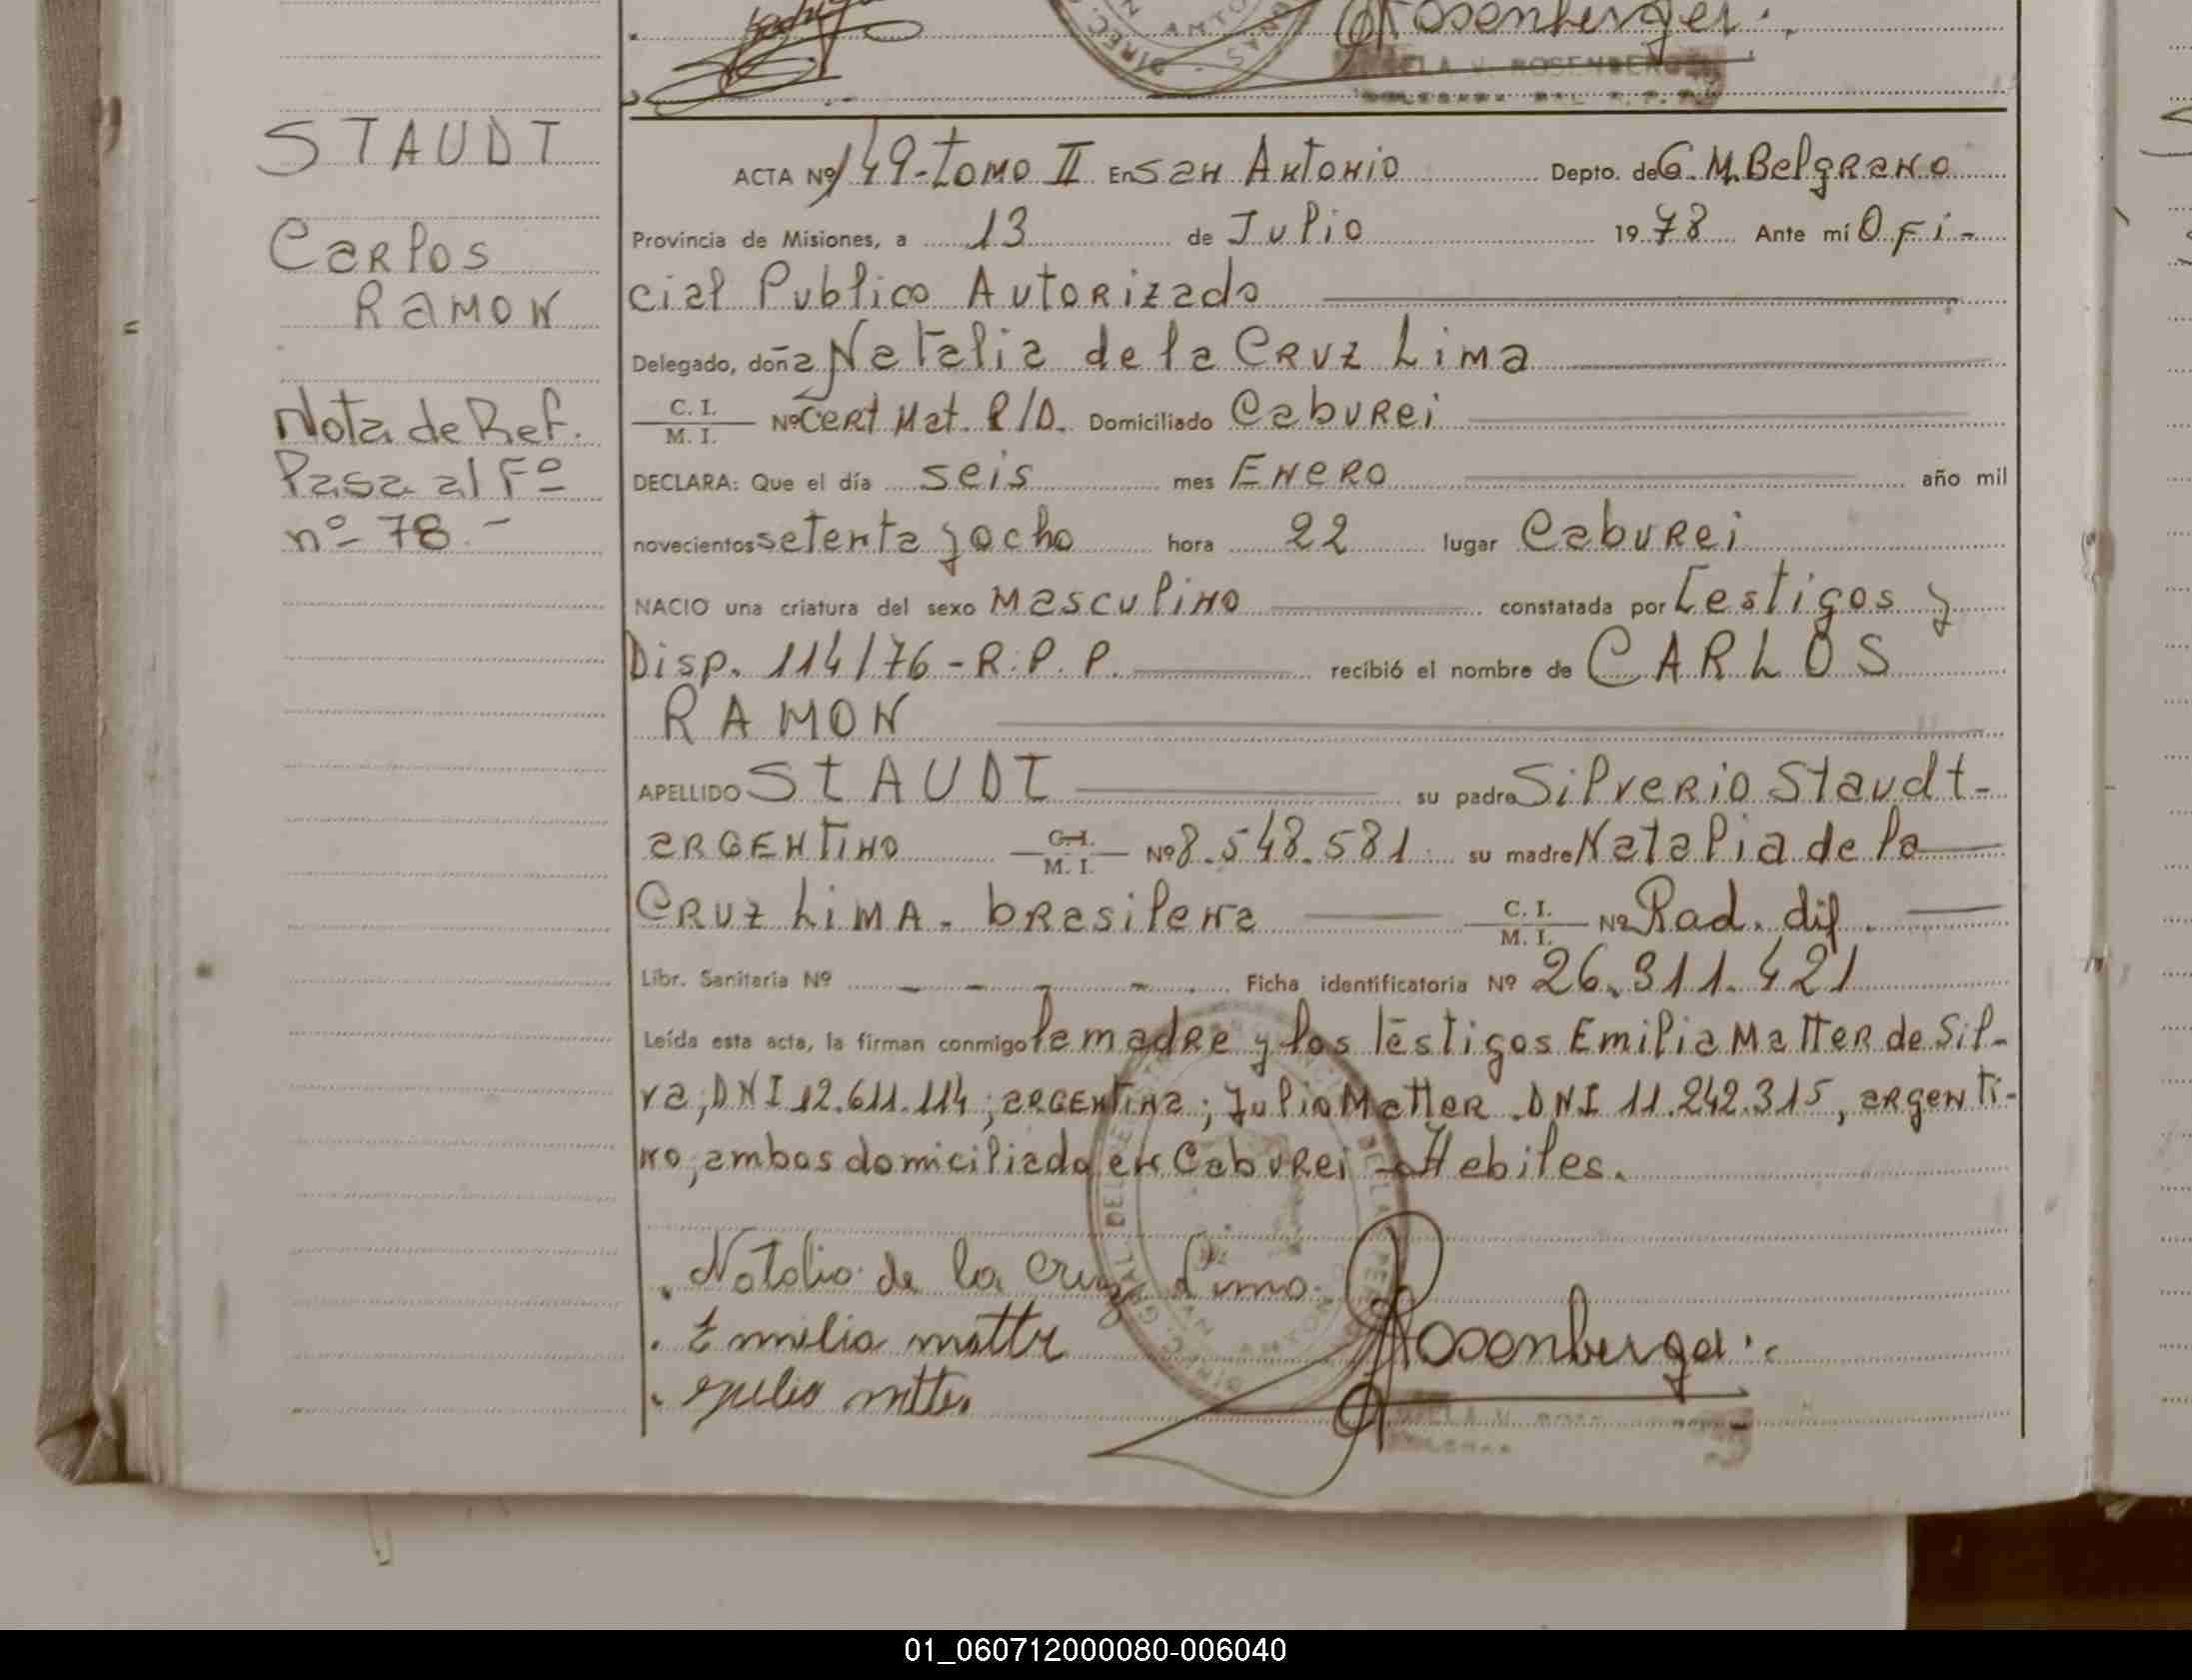 Rosenberger
STAUDT
Carlos
Ramon
Nota de Ref.
Pasa al Fº
nº 78.-
ACTA Nº 149-Tomo II En San Antonio Depto. de G. M. Belgrano
Provincia de Misiones, a 13 de Julio 1978 Ante mí Ofi-
cial Publico Autorizado
Delegado, doña Natalia de la Cruz Lima
C. I. / M. I. Nº Cert Nat. R/D. Domiciliado Caburei
DECLARA: Que el día seis mes Enero año mil
novecientos setenta y ocho hora 22 lugar Caburei
NACIO una criatura del sexo Masculino constatada por Testigos y
Disp. 114/76-R.P.P. recibió el nombre de CARLOS
RAMON
APELLIDO STAUDT su padre Silverio Staudt-
argentino C.I. / M. I. Nº 8.548.581 su madre Natalia de la
Cruz Lima. brasilena C. I. / M. I. Nº Rad. dif.
Libr. Sanitaria Nº - - - - Ficha identificatoria Nº 26.311.421
Leída esta acta, la firman conmigo la madre y los testigos Emilia Matter de Sil-
va, DNI 12.611.114, argentina; Julio Matter DNI 11.242.315, argenti-
no, ambos domiciliado en Caburei - Habiles.
Natalia de la Cruz Lima.
Emilia matter
Rosenberger
Julio matter
01_060712000080-006040